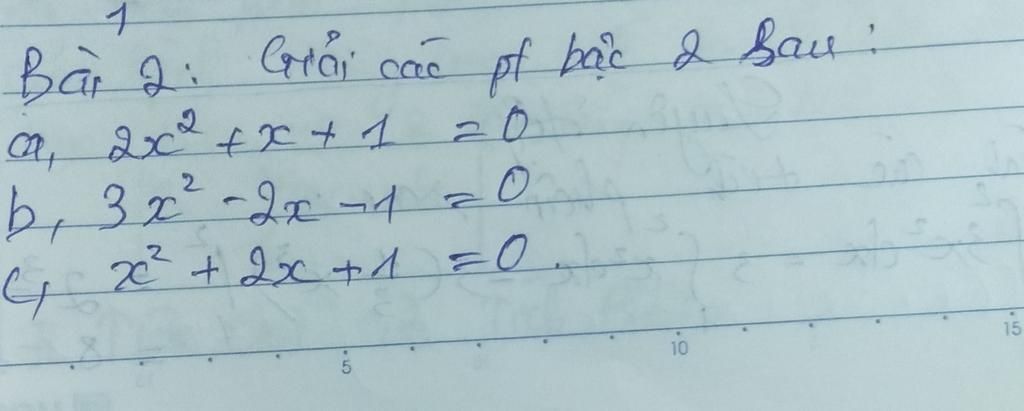 1
Bài 2: Giải các pt bậc 2 sau:
a, 2x² + x + 1 = 0
b, 3x² - 2x - 1 = 0
c, x² + 2x + 1 = 0.
5 10 15